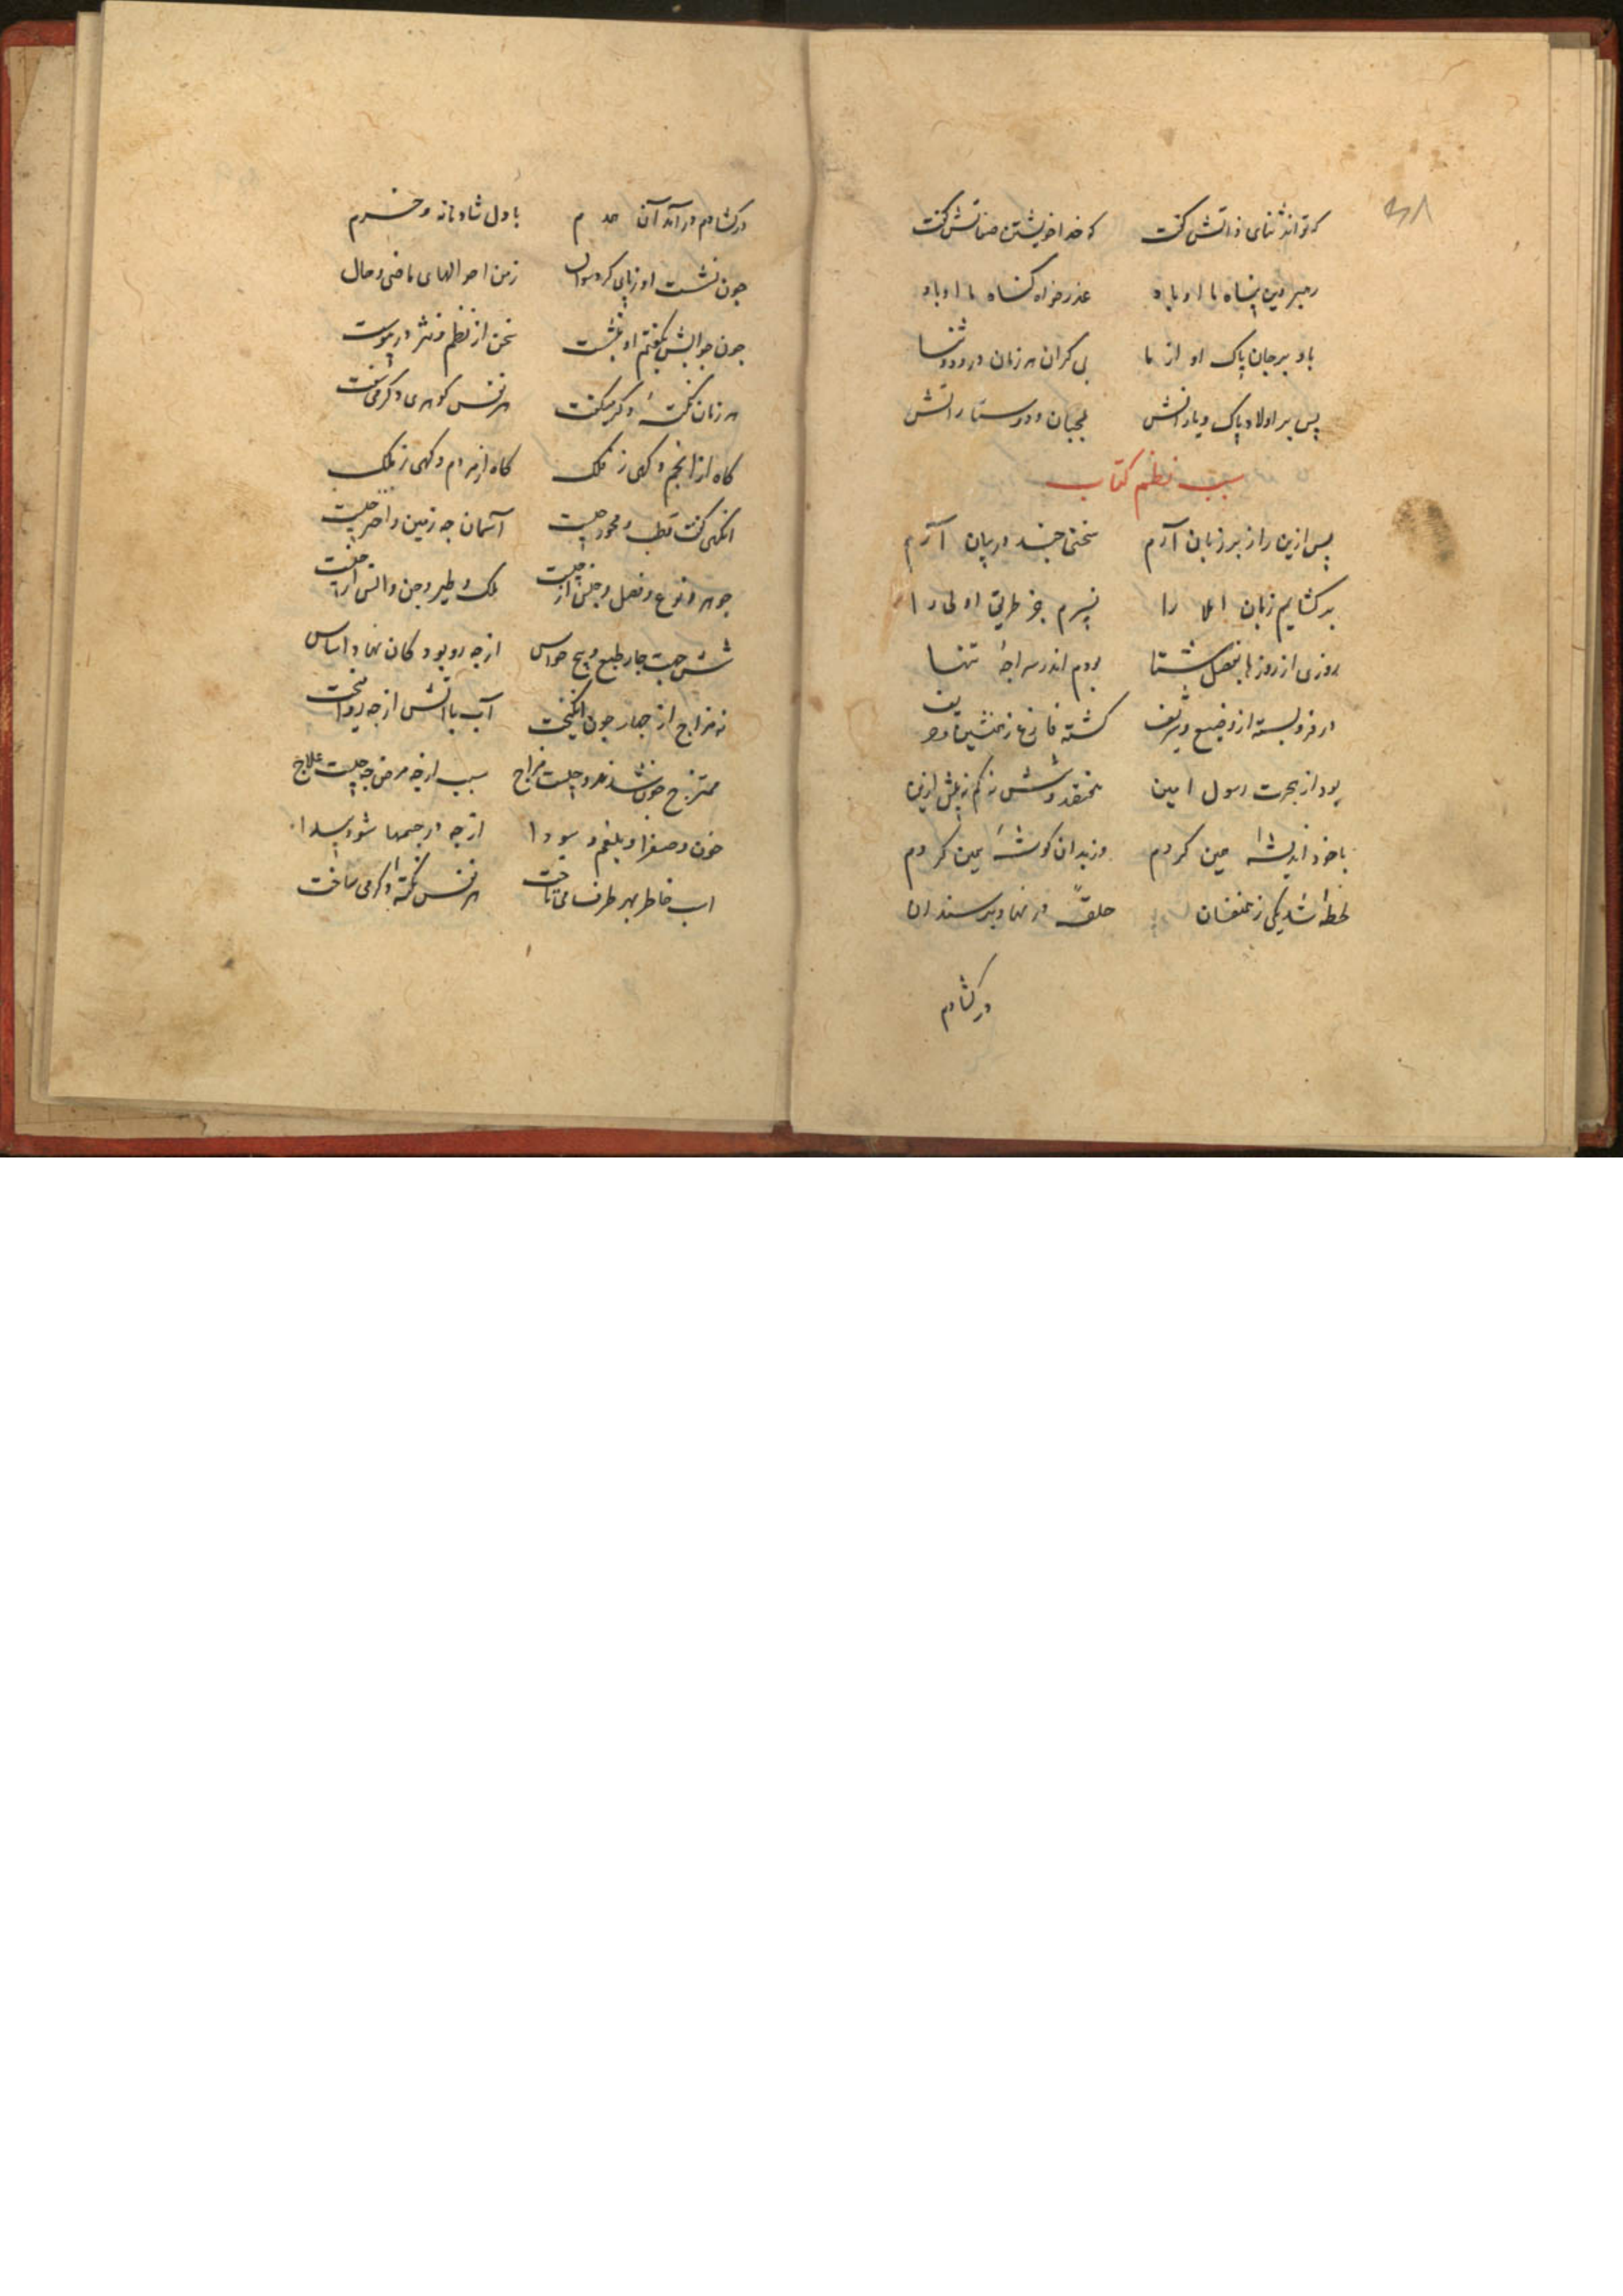 که تواند ثنای ذاتش گفت که خدا خویشتن صفاتش گفت
رهبر دین پناه ما او باد عذرخواه گناه ما او باد
باد بر جان پاک او از ما بی کران هر زمان درود و ثنا
پس بر اولاد پاک و یارانش محبان و دوستدارانش
سبب نظم کتاب
پس ازین راز بر زبان آرم سخنی چند در بیان آرم
برکشایم زبان املا را نسپرم جز طریق اولی را
روزی از روزها بفصل شتا بودم اندر سراچهٔ تنها
در فرو بسته از وضیع و شریف کشته فارغ ز همنشین و حریف
بود از هجرت رسول امین هفتصد و شش نه کم نه بیش ازین
با خود اندیشهٔ معین کردم وز بدان کوشهٔ کردم
لحظهٔ شد یکی ز حلقهٔ در نهاد بر سندان
در کشادم
در کشادم در آمد آن همدم با دل شادمانه و خرم
جون نشست او ز پای کرد سوال ز من احوالهای ماضی و حال
جون جوابش بکفتم او بنشست سخن از نظم و نثر در پیوست
هر زمان نکتهٔ دکر میکفت هر نفس کوهری دکر می سفت
کاه از انجم و کهی ز فلک کاه از مردم و کهی ز ملک
انکهی کفت قطب و محور جیست آسمان جه زمین و اختر جیست
جوهر و نوع و فصل و جنس از جیست ملک و طیر و جن و انس از جیست
شش جهت جار طبع و پنج حواس از جه رو بود کان نهاد اساس
نه مزاج از جهار جون انکیخت آب با آتش از جه رو آمیخت
ممتزج جون شدند و جیست مزاج سبب از جه مرض جه جیست علاج
خون و صفرا و بلغم و سودا از جه در جسمها شود پیدا
اسب خاطر بهر طرف می تاخت هر نفس نکتهٔ دکر می ساخت